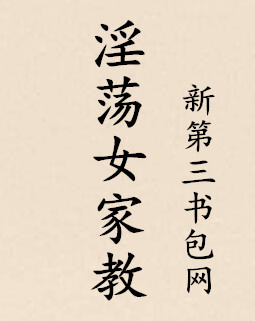 淫荡女家教
新第三书包网